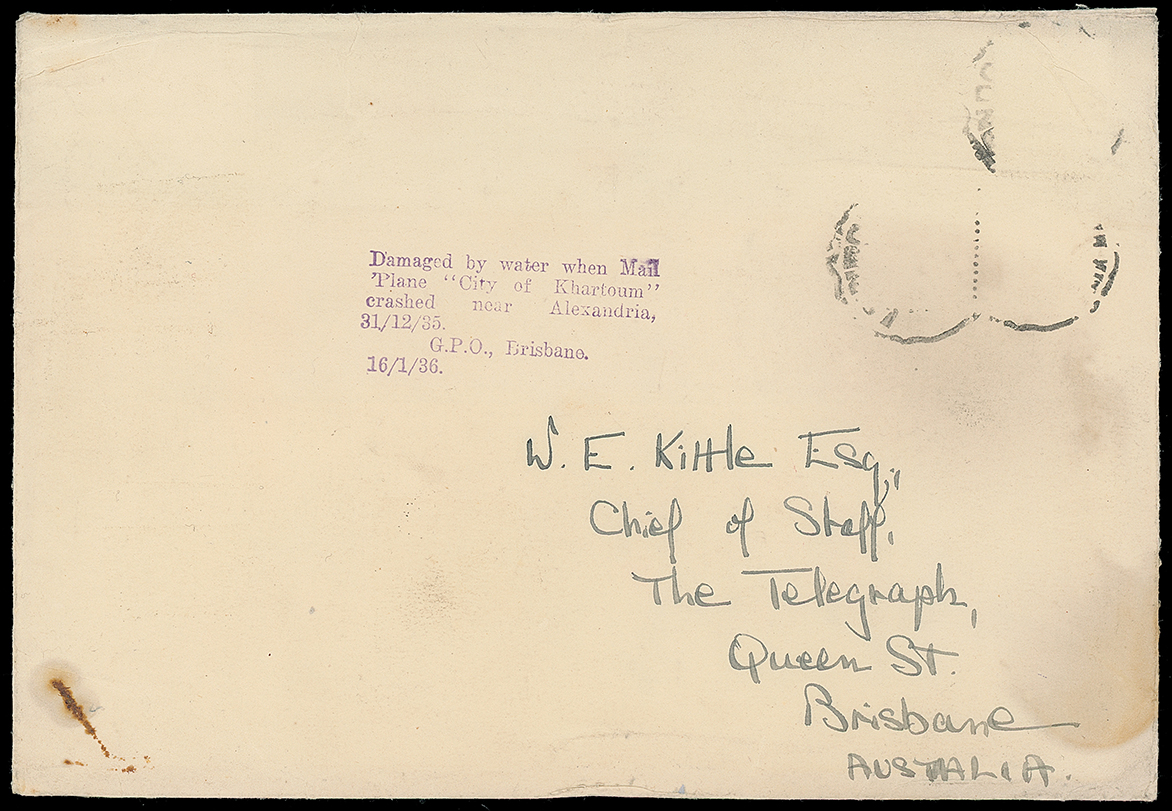 Damaged by water when Mail
Plane "City of Khartoum"
crashed near Alexandria,
31/12/35.
G.P.O., Brisbane.
16/1/36.
W. E. Kittle Esq.,
Chief of Staff,
The Telegraph,
Queen St.
Brisbane
AUSTRALIA.